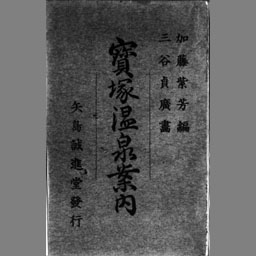 加藤紫芳編
三谷貞廣畵
寶塚温泉案内
矢島誠進堂發行